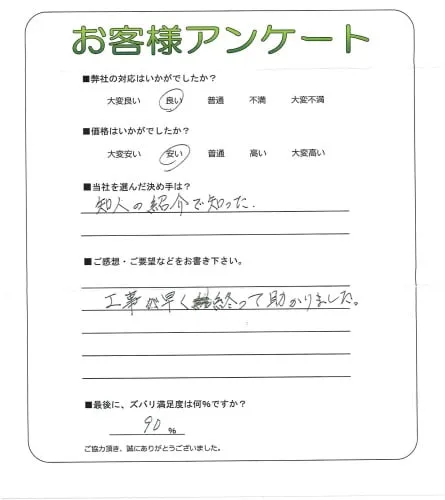 お客様アンケート
■弊社の対応はいかがでしたか?
大変良い 良い 普通 不満 大変不満
■価格はいかがでしたか?
大変安い 安い 普通 高い 大変高い
■当社を選んだ決め手は?
知人の紹介で知った.
■ご感想・ご要望などをお書き下さい。
工事が早く終って助かりました。
■最後に、ズバリ満足度は何%ですか?
90 %
ご協力頂き、誠にありがとうございました。